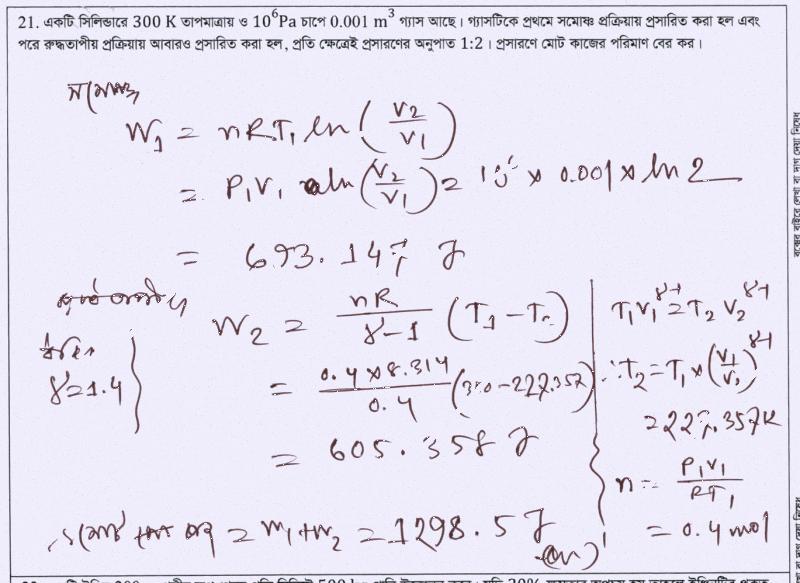 21. একটি সিলিন্ডারে 300 K তাপমাত্রায় ও 10⁶Pa চাপে 0.001 m³ গ্যাস আছে। গ্যাসটিকে প্রথমে সমোষ্ণ প্রক্রিয়ায় প্রসারিত করা হল এবং
পরে রুদ্ধতাপীয় প্রক্রিয়ায় আবারও প্রসারিত করা হল, প্রতি ক্ষেত্রেই প্রসারণের অনুপাত 1:2। প্রসারণে মোট কাজের পরিমাণ বের কর।
সমোষ্ণ
W₁ = nRT₁ ln (V₂/V₁)
= P₁V₁ ln (V₂/V₁) = 10⁶ × 0.001 × ln 2
= 693.147 J
W₂ = nR/(γ-1) (T₁ - T₂)
ধরি
γ=1.4
= (0.4 × 8.314)/0.4 (300-227.357)
= 605.358 J
T₁V₁^(γ-1) = T₂V₂^(γ-1)
∴T₂ = T₁ × (V₁/V₂)^(γ-1)
= 227.357K
n = P₁V₁/RT₁
= 0.4 mol
= W₁+W₂ = 1298.5 J
(Ans)